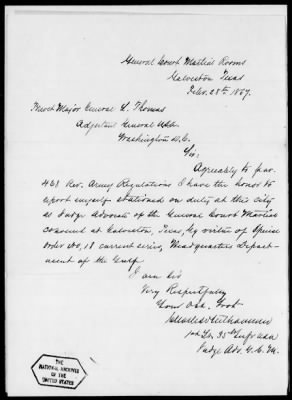 General Court Martial Rooms
Galveston Texas
Febr. 28th 1867.
Brevet Major General L. Thomas
Adjutant General USA.
Washington D.C.
Sir:
Agreeably to par.
468 Rev. Army Regulations I have the honor to
report myself stationed on duty at this city
as Judge Advocate of the General Court Martial
convened at Galveston, Texas, by virtue of Special
Order No. 18 current series, Headquarters Depart-
ment of the Gulf.
I am Sir
Very Respectfully
Your Obt. Servt
1st Lt. 35th Infy USA
Judge Adv. G.C.M.
THE
NATIONAL ARCHIVES
OF THE
UNITED STATES